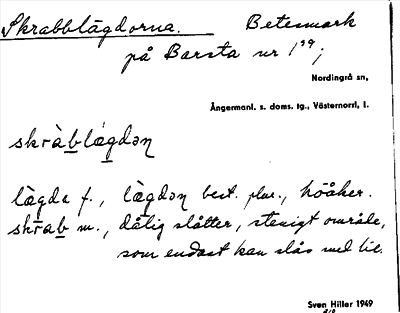 Skrabblägdorna. Betesmark
på Barsta nr 1¹⁹;
Nordingrå sn,
Ångermanl. s. doms. tg., Västernorrl, l.
skràb̲lǽgdən
lægda f., lægdən best. plur., höåker.
skrab̲ m., dålig slåtter, stenigt område,
som endast kan slås med lie.
Sven Hiller 1949